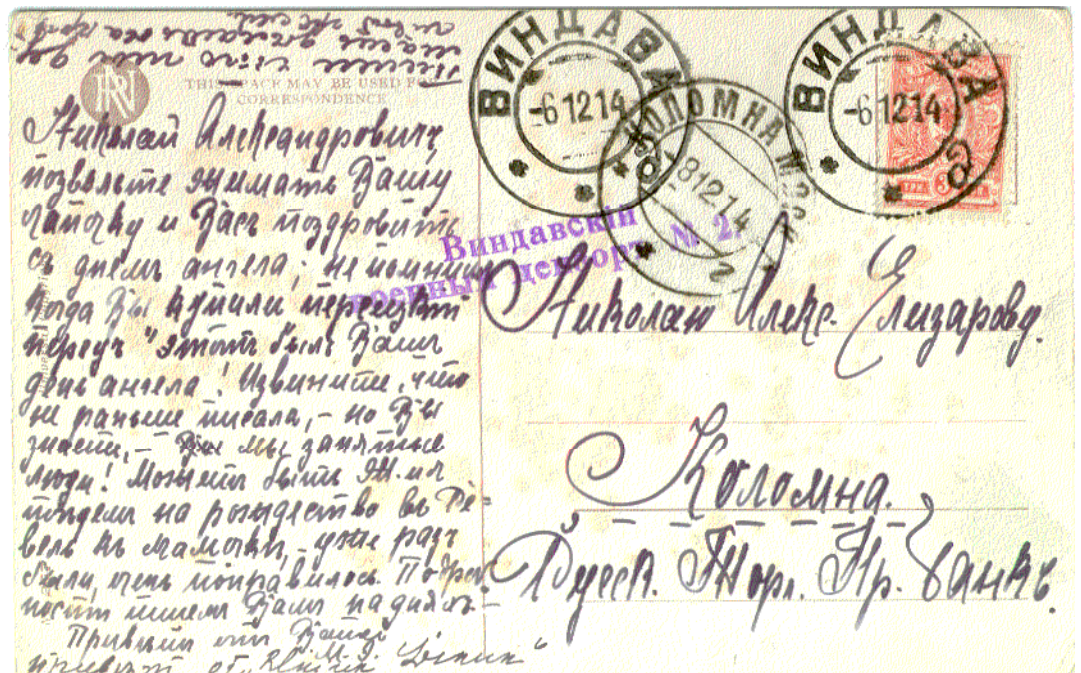 THIS SPACE MAY BE USED FOR
CORRESPONDENCE
Николай Александровичъ,
позвольте пожать Вашу
лапочку и Васъ поздровить
съ днемъ ангела; не помню
когда Вы купили
"этотъ былъ Вашъ
день ангела! Извините, что
не раньше писала, – но Вы
знаете, – мы занятые
люди! Можетъ быть
поѣдемъ на рождество въ Ре-
вель къ мамочки, – уже разъ
были, очень понравилось. Подроб
пишемъ Вамъ на дняхъ. –
Приветъ отъ Вашей
М. Э.
приветъ от
ВИНДАВА
-6 12 14
ВИНДАВА
-6 12 14
КОЛОМНА МОСК.
8 12 14
Виндавскій
военный цензоръ № 2.
ТРИ 3
Николаю Алекс. Елизарову.
Коломна.
Русск. Торг. Пр. банкъ.